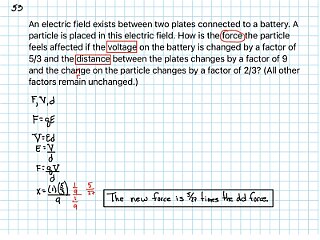 53
An electric field exists between two plates connected to a battery. A
particle is placed in this electric field. How is the force the particle
feels affected if the voltage on the battery is changed by a factor of
5/3 and the distance between the plates changes by a factor of 9
and the change on the particle changes by a factor of 2/3? (All other
factors remain unchanged.)
F, V, d
F=qE
V=Ed
E=V/d
F=qV/d
The new force is 5/27 times the old force.